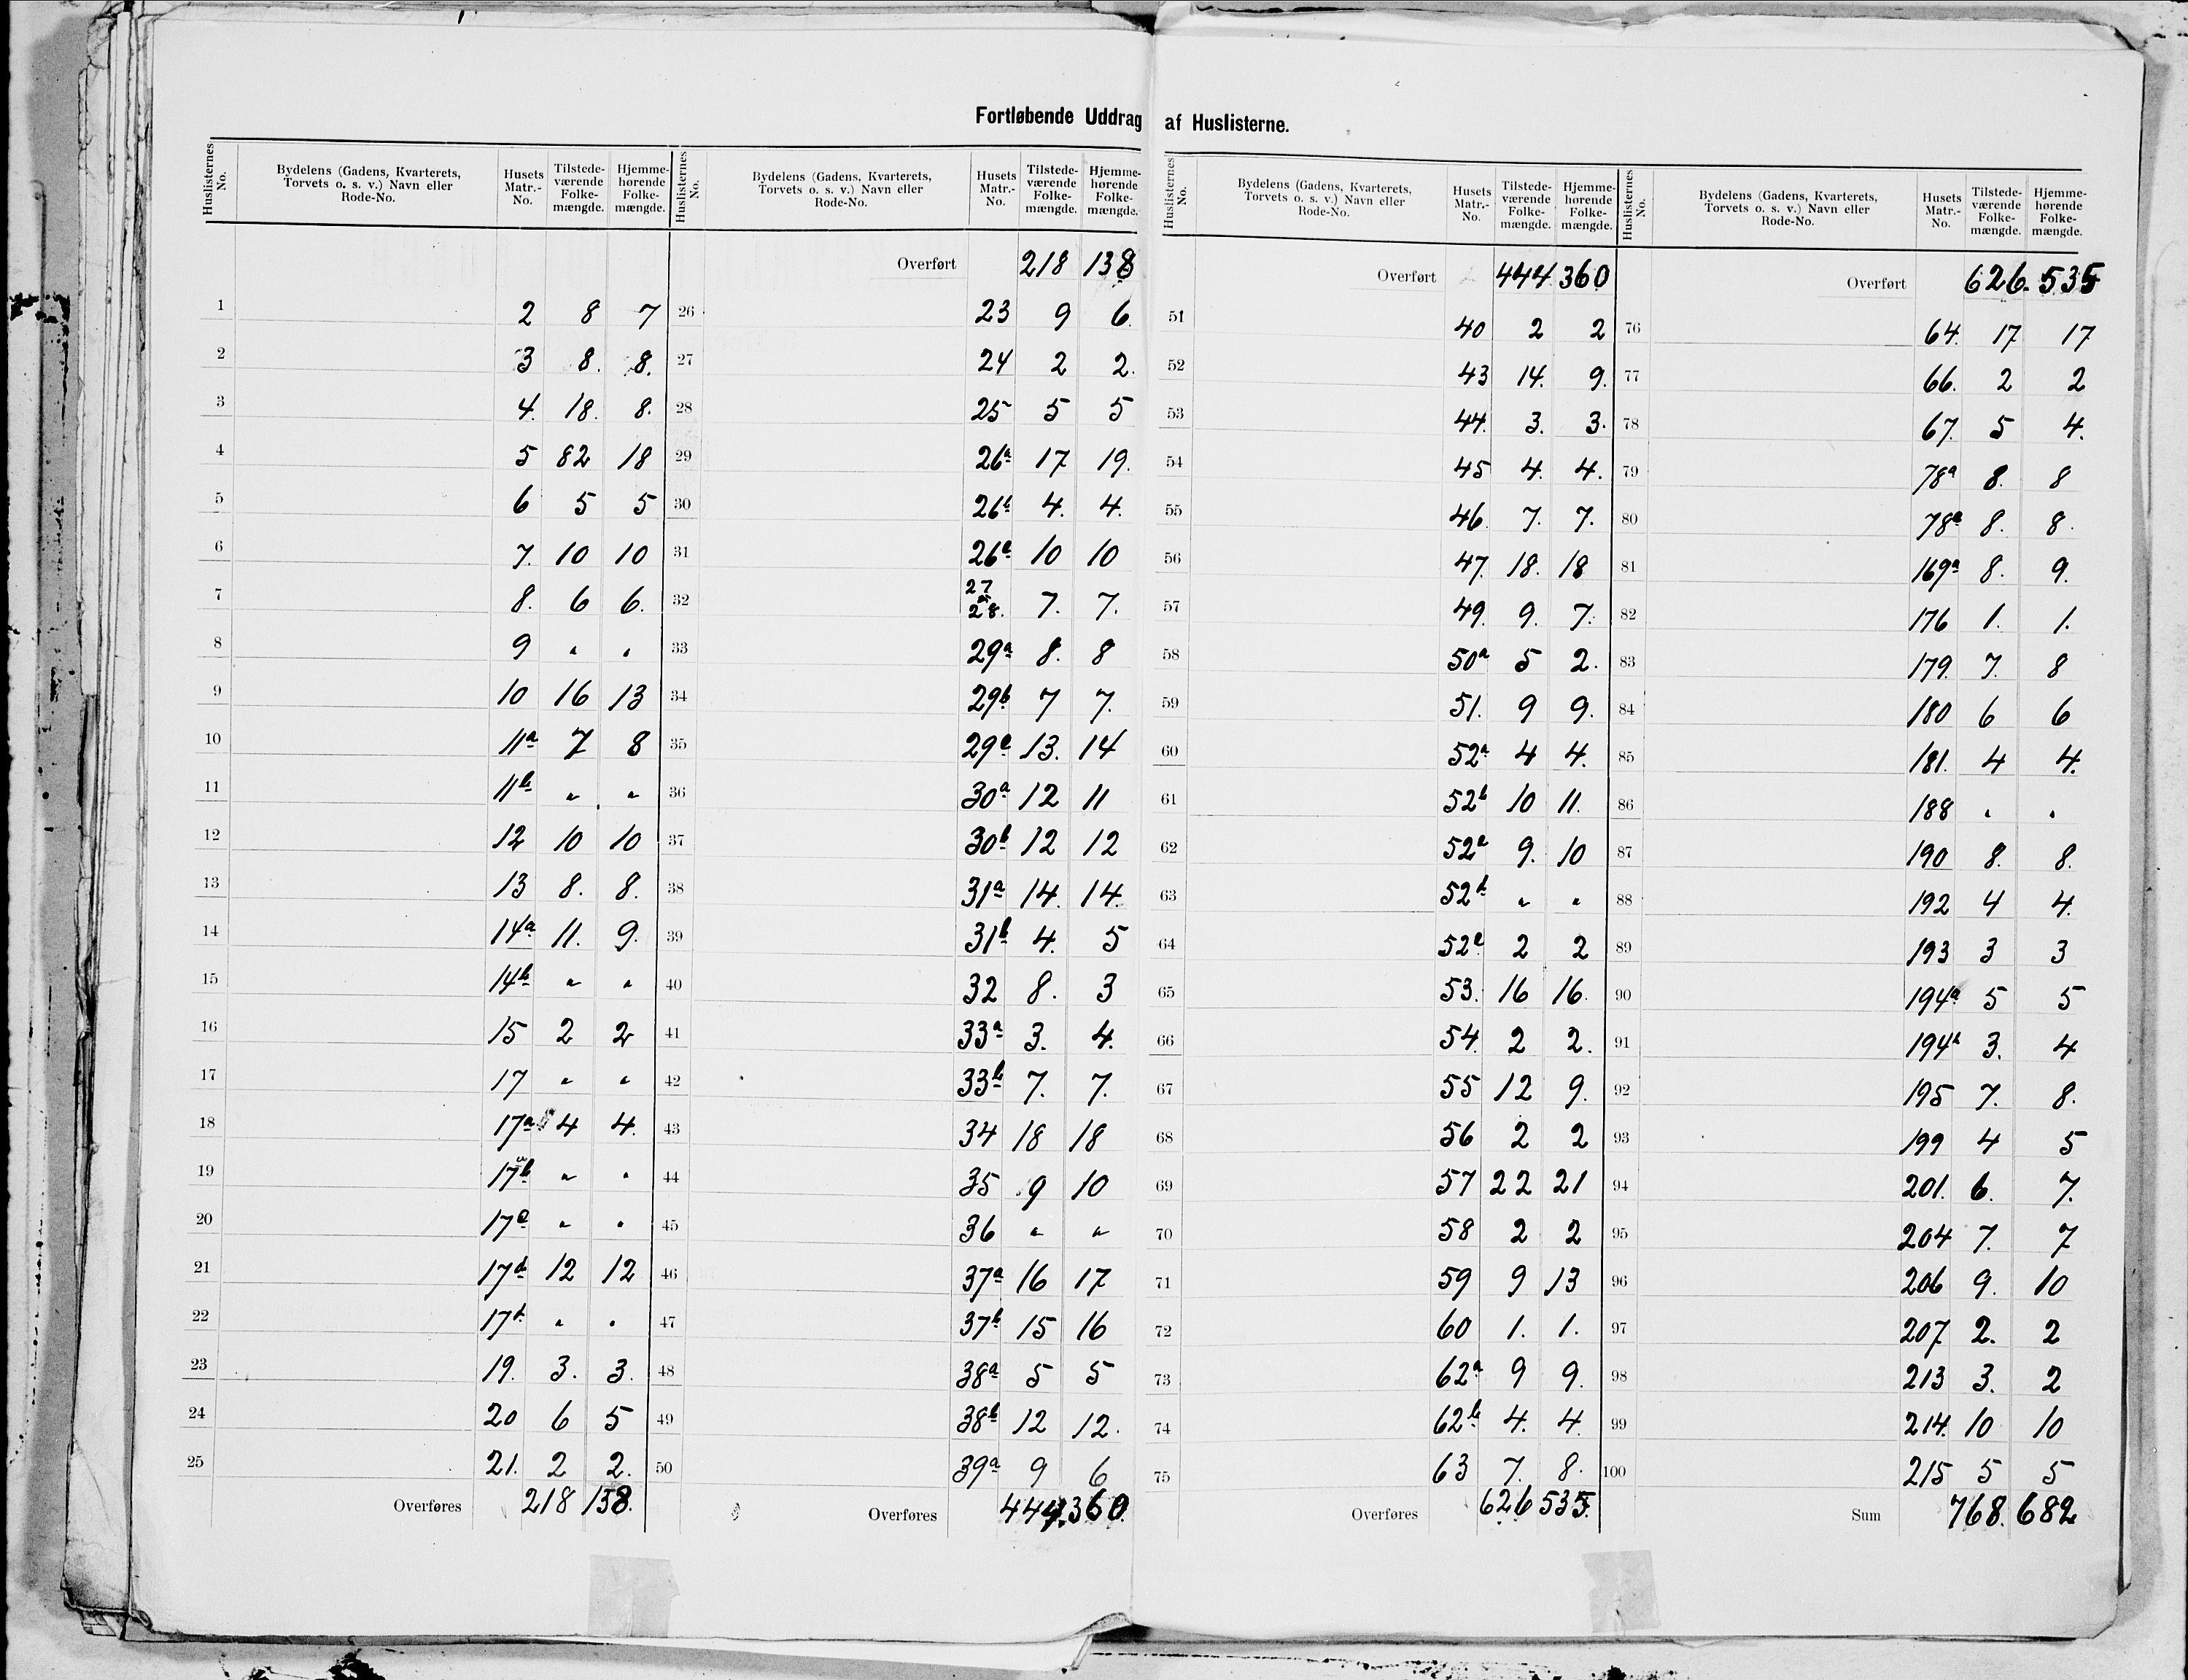 Fortløbende Uddrag af Huslisterne.
Huslisternes No. | Bydelens (Gadens, Kvarterets, Torvets o. s. v.) Navn eller Rode-No. | Husets Matr.-No. | Tilstede-værende Folke-mængde. | Hjemme-hørende Folke-mængde.
1 2 8 7
2 3 8. 8.
3 4. 18. 8.
4 5 82 18
5 6 5 5
6 7. 10 10
7 8. 6 6.
8 9 " "
9 10 16 13
10 11a 7 8
11 11b " "
12 12 10 10
13 13 8. 8.
14 14a 11. 9.
15 14b " "
16 15 2 2
17 17 " "
18 17a 4 4.
19 17b " "
20 17c " "
21 17d 12 12
22 " "
23 19. 3. 3.
24 20 6 5
25 21. 2 2.
Overføres 218 138.
Huslisternes No. | Bydelens (Gadens, Kvarterets, Torvets o. s. v.) Navn eller Rode-No. | Husets Matr.-No. | Tilstede-værende Folke-mængde. | Hjemme-hørende Folke-mængde.
Overført 218 138
26 23 9 6.
27 24 2 2.
28 25 5 5
29 26a 17 19.
30 26b 4. 4.
31 26c 10 10
32 27 28. 7. 7.
33 29a 8. 8
34 29b 7 7.
35 29c 13. 14
36 30a 12 11
37 30b 12 12
38 31a 14. 14.
39 31b 4. 5
40 32 8. 3
41 33a 3. 4.
42 33b 7. 7.
43 34 18 18
44 35 9 10
45 36 " "
46 37a 16 17
47 37b 15 16
48 38a 5 5
49 38b 12 12.
50 39a 9 6
Overføres 444. 360.
Huslisternes No. | Bydelens (Gadens, Kvarterets, Torvets o. s. v.) Navn eller Rode-No. | Husets Matr.-No. | Tilstede-værende Folke-mængde. | Hjemme-hørende Folke-mængde.
Overført 444 360
51 40 2 2
52 43 14. 9.
53 44. 3. 3.
54 45 4. 4.
55 46. 7. 7.
56 47. 18. 18
57 49. 9. 7.
58 50a 5 2.
59 51. 9 9.
60 52a 4 4.
61 52b 10 11.
62 52c 9. 10
63 52d " "
64 52e 2 2
65 53. 16 16.
66 54. 2 2.
67 55 12 9.
68 56 2 2
69 57 22 21
70 58 2 2
71 59 9 13
72 60 1. 1.
73 62a 9 9.
74 62b 4. 4.
75 63 7. 8.
Overføres 626 535.
Huslisternes No. | Bydelens (Gadens, Kvarterets, Torvets o. s. v.) Navn eller Rode-No. | Husets Matr.-No. | Tilstede-værende Folke-mængde. | Hjemme-hørende Folke-mængde.
Overført 626. 535
76 64. 17 17
77 66. 2 2
78 67. 5 4.
79 78a 8. 8
80 8. 8.
81 169a 8. 9.
82 176 1. 1.
83 179. 7. 8
84 180 6 6
85 181. 4 4.
86 188 " "
87 190 8. 8.
88 192 4 4.
89 193 3 3
90 194a 5 5
91 194b 3. 4
92 195 7. 8.
93 199 4 5
94 201. 6. 7.
95 204 7. 7
96 206 9. 10
97 207 2. 2
98 213 3. 2
99 214. 10 10
100 215 5 5
Sum 768. 682